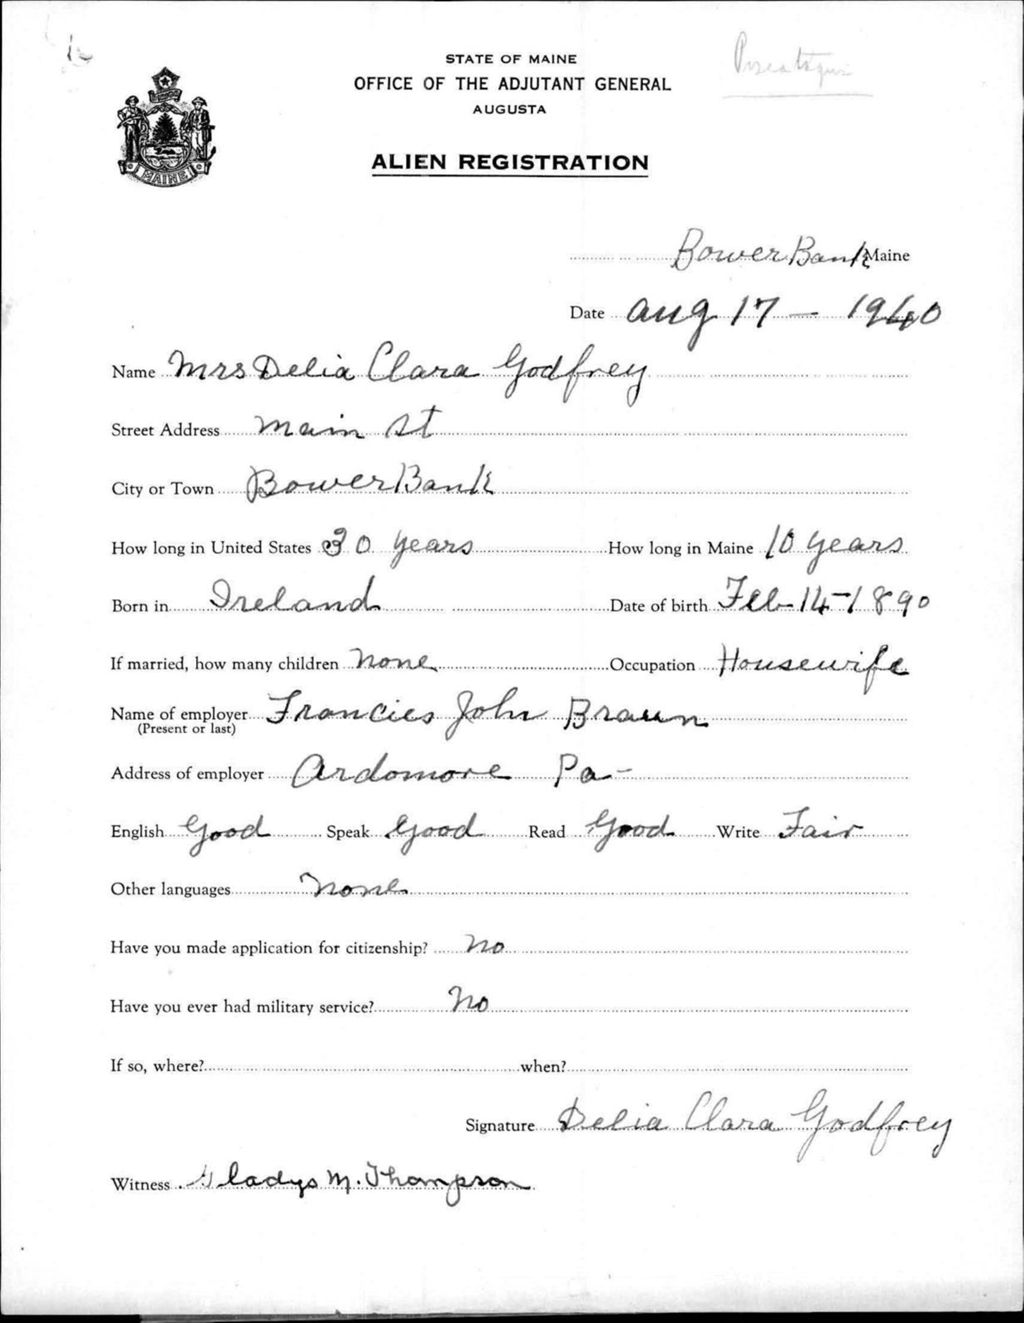 STATE OF MAINE
OFFICE OF THE ADJUTANT GENERAL
AUGUSTA
ALIEN REGISTRATION
BowerBank Maine
Date Aug 17 - 1940
Name Mrs Delia Clara Godfrey
Street Address Main St
City or Town BowerBank
How long in United States 30 years How long in Maine 10 years
Born in Ireland Date of birth Feb-14-1890
If married, how many children None Occupation Housewife
Name of employer Francies John Braun
(Present or last)
Address of employer Ardomore Pa-
English Good Speak Good Read Good Write Fair
Other languages None
Have you made application for citizenship? No
Have you ever had military service? No
If so, where? when?
Signature Delia Clara Godfrey
Witness Gladys M. Thompson
MAINE